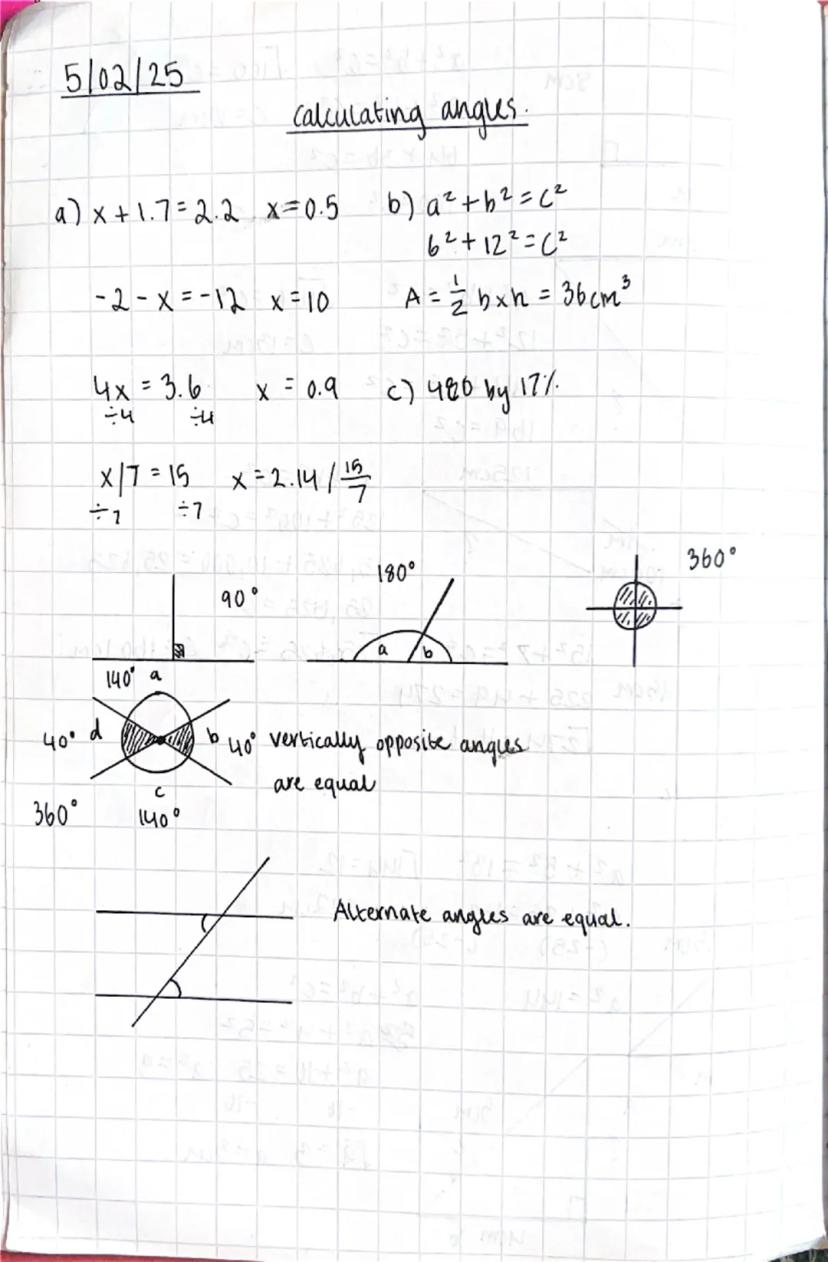 5/02/25
calculating angles.
a) x + 1.7 = 2.2 x = 0.5 b) a² + b² = c²
6² + 12² = c²
-2 - x = -12 x = 10 A = ½ b x h = 36cm³
4x = 3.6 x = 0.9 c) 480 by 17%
÷4 ÷4
x/7 = 15 x = 2.14 / 15/7
÷7 ÷7
90° 180° 360°
a b
140° a
40° d b 40° vertically opposite angles
are equal
c
360° 140°
Alternate angles are equal.